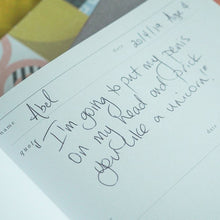 name Abel
date 20/4/19 Age 4
quote I'm going to put my penis
on my head and prick
you like a unicorn"